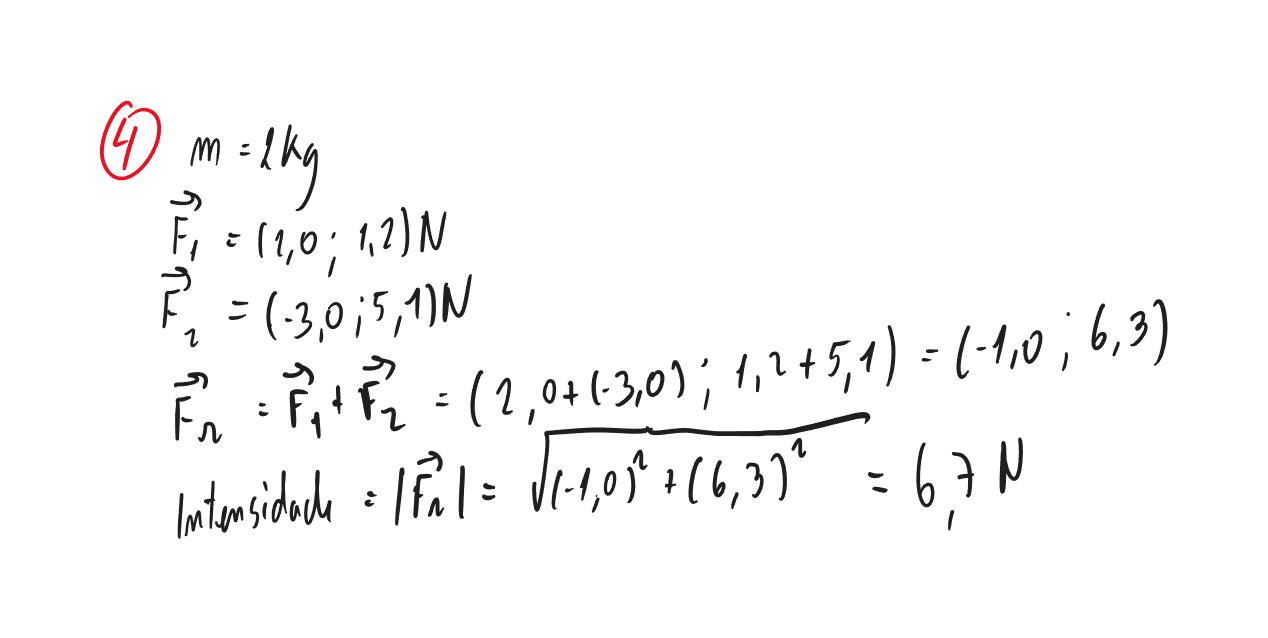 ④ m = 2kg
F⃗₁ = (2,0 ; 1,2) N
F⃗₂ = (-3,0 ; 5,1) N
F⃗r = F⃗₁ + F⃗₂ = (2,0 + (-3,0) ; 1,2 + 5,1) = (-1,0 ; 6,3)
Intensidade = |F⃗r| = √((-1,0)² + (6,3)²) = 6,7 N